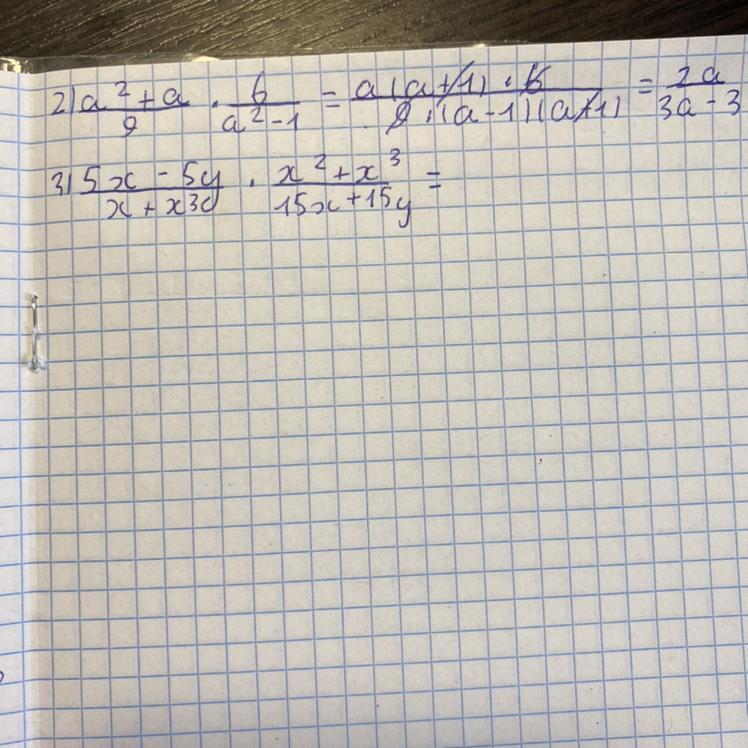 2) a² + a / 9 · 6 / a² - 1 = a(a+1) · 6 / 9 · (a-1)(a+1) = 2a / 3a - 3
3) 5x - 5y / x + x³ · x² + x³ / 15x + 15y =